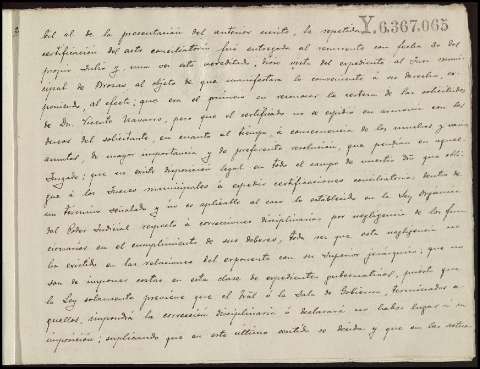 Y.6.367.065
bil al de la presentación del anterior escrito, la repetida
certificación del acto conciliatorio fué entregada al recurrente con fecha 20 del
propio Julio y, una vez esto acreditado, dióse vista del expediente al Juez muni-
cipal de Brozas al objeto de que manifestara lo conveniente á su derecho, ex-
poniendo, al efecto; que era el primero en reconocer la certeza de las solicitudes
de Dn. Vicente Navarro, pero que el certificado no se expidió en armonía con los
deseos del solicitante, en cuanto al tiempo, á consecuencia de los muchos y varios
asuntos, de mayor importancia y de preferente resolución, que pendían en aquel
Juzgado; que no existe disposición legal en todo el campo de nuestro Dro que obli-
gue á los Jueces municipales á expedir certificaciones conciliatorias dentro de
un término señalado y no es aplicable al caso lo establecido en la Ley Orgánica
del Poder Judicial respecto á correcciones disciplinarias por negligencia de los fun-
cionarios en el cumplimiento de sus deberes, toda vez que esta negligencia no
ha existido en las relaciones del exponente con su superior jerárquico; que no
son de imponer costas en esta clase de expedientes gubernativos, puesto que
la Ley solamente previene que el Tral ó la Sala de Gobierno, terminados a-
quellos, impondrá la corrección disciplinaria ó declarará no haber lugar á su
imposición; suplicando que en este último sentido se decida y que en las